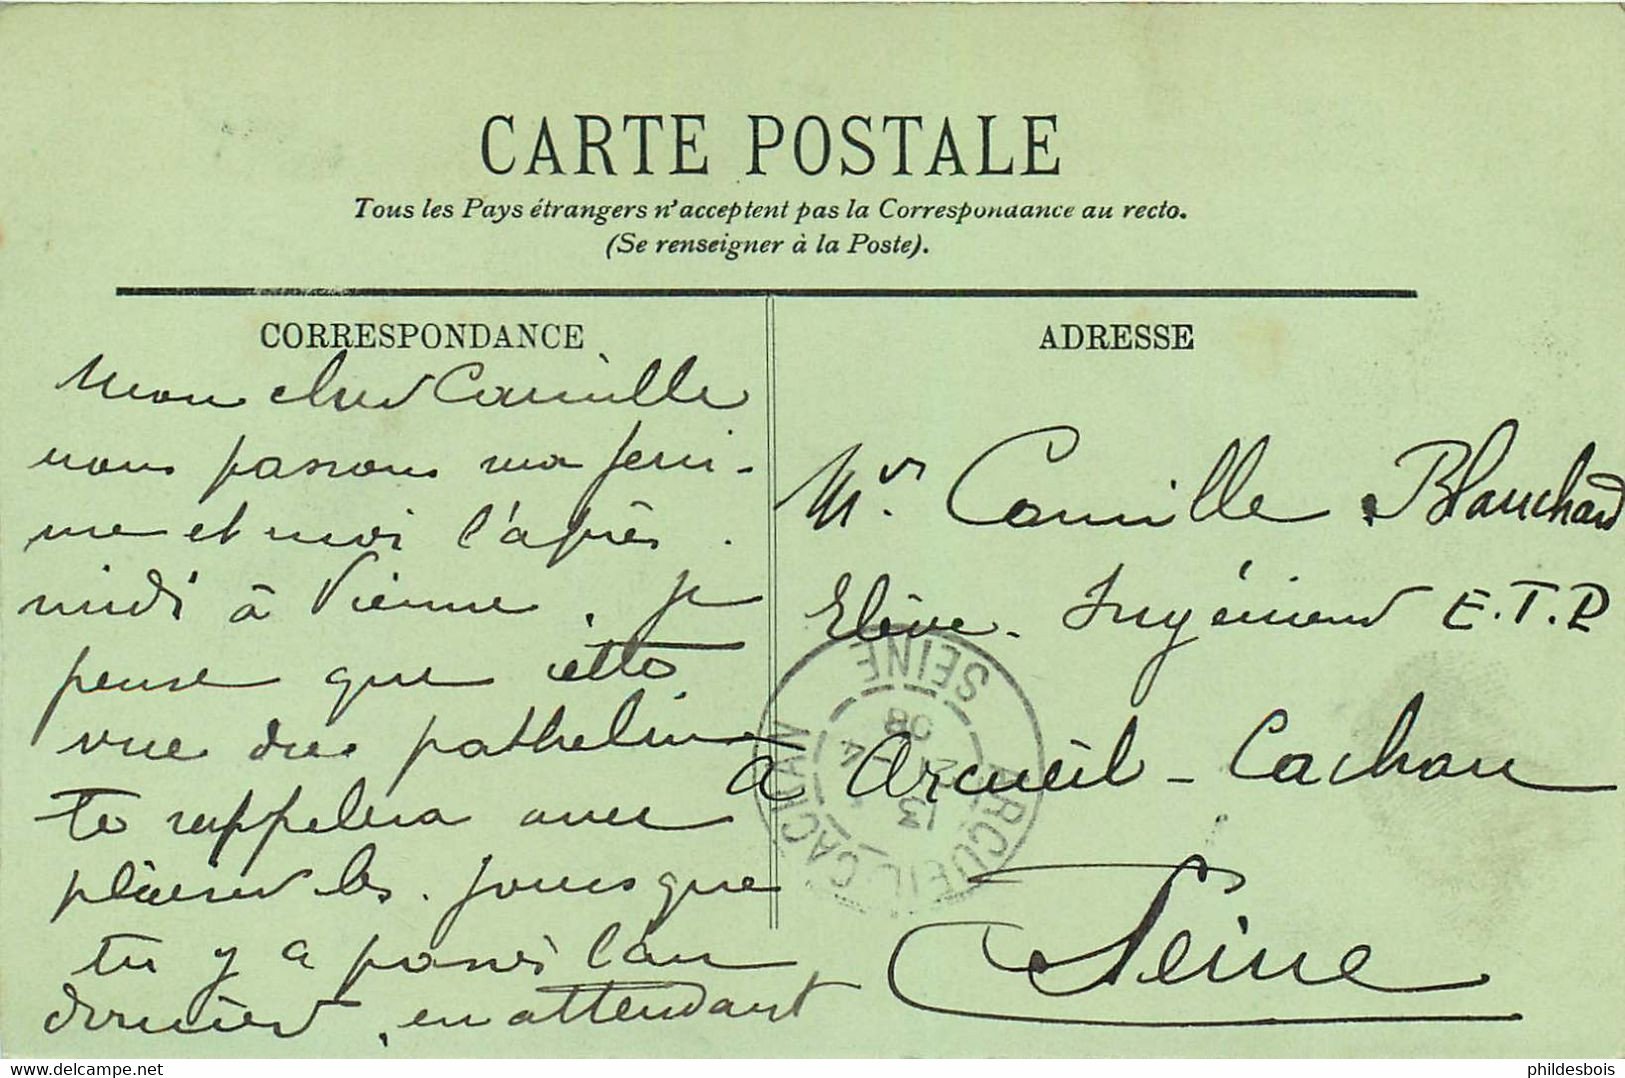 CARTE POSTALE
Tous les Pays étrangers n'acceptent pas la Correspondance au recto.
(Se renseigner à la Poste).
CORRESPONDANCE
Mon cher Camille
nous passons ma fem-
me et moi l'après.
midi à Vienne. Je
pense que cette
vue des pathelin
te rappelera avec
plaisir les jours que
tu y a passés l'an
dernier, en attendant
ADRESSE
Mr. Camille Blanchard
Elève-Ingénieur E.T.P
à Arcueil-Cachan
Seine
ARCUEIL-CACHAN
SEINE
13
4
08
phildesbois
delcampe.net